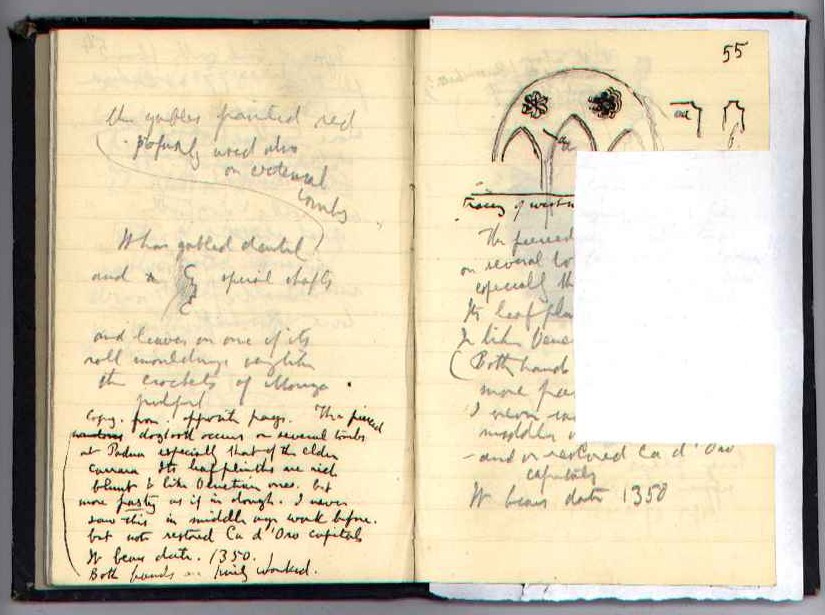 the gables painted red
profusely used also
on external
tombs
It has gabled dentil
and spiral shafts
and leaves on one of its
roll mouldings very like
the crockets of Monza
pulpit
Copy. from. opposite page. The pierced
dogtooth occurs on several tombs
at Padua especially that of the elder
Carrara Its leaf plinths are rich
blunt & like Venetian ones. but
more pasty as if in dough. I never
saw this in middle age work before.
but not restored Ca d'Oro capitals
It bears date. 1350.
Both hands finely worked.
55
Tracery of west
The pierced
on several to
especially th
Its leaf pla
& like Vene
(Both hands
more pas
I never
middle
and or restored Ca d'Oro
capitals
It bears date 1350